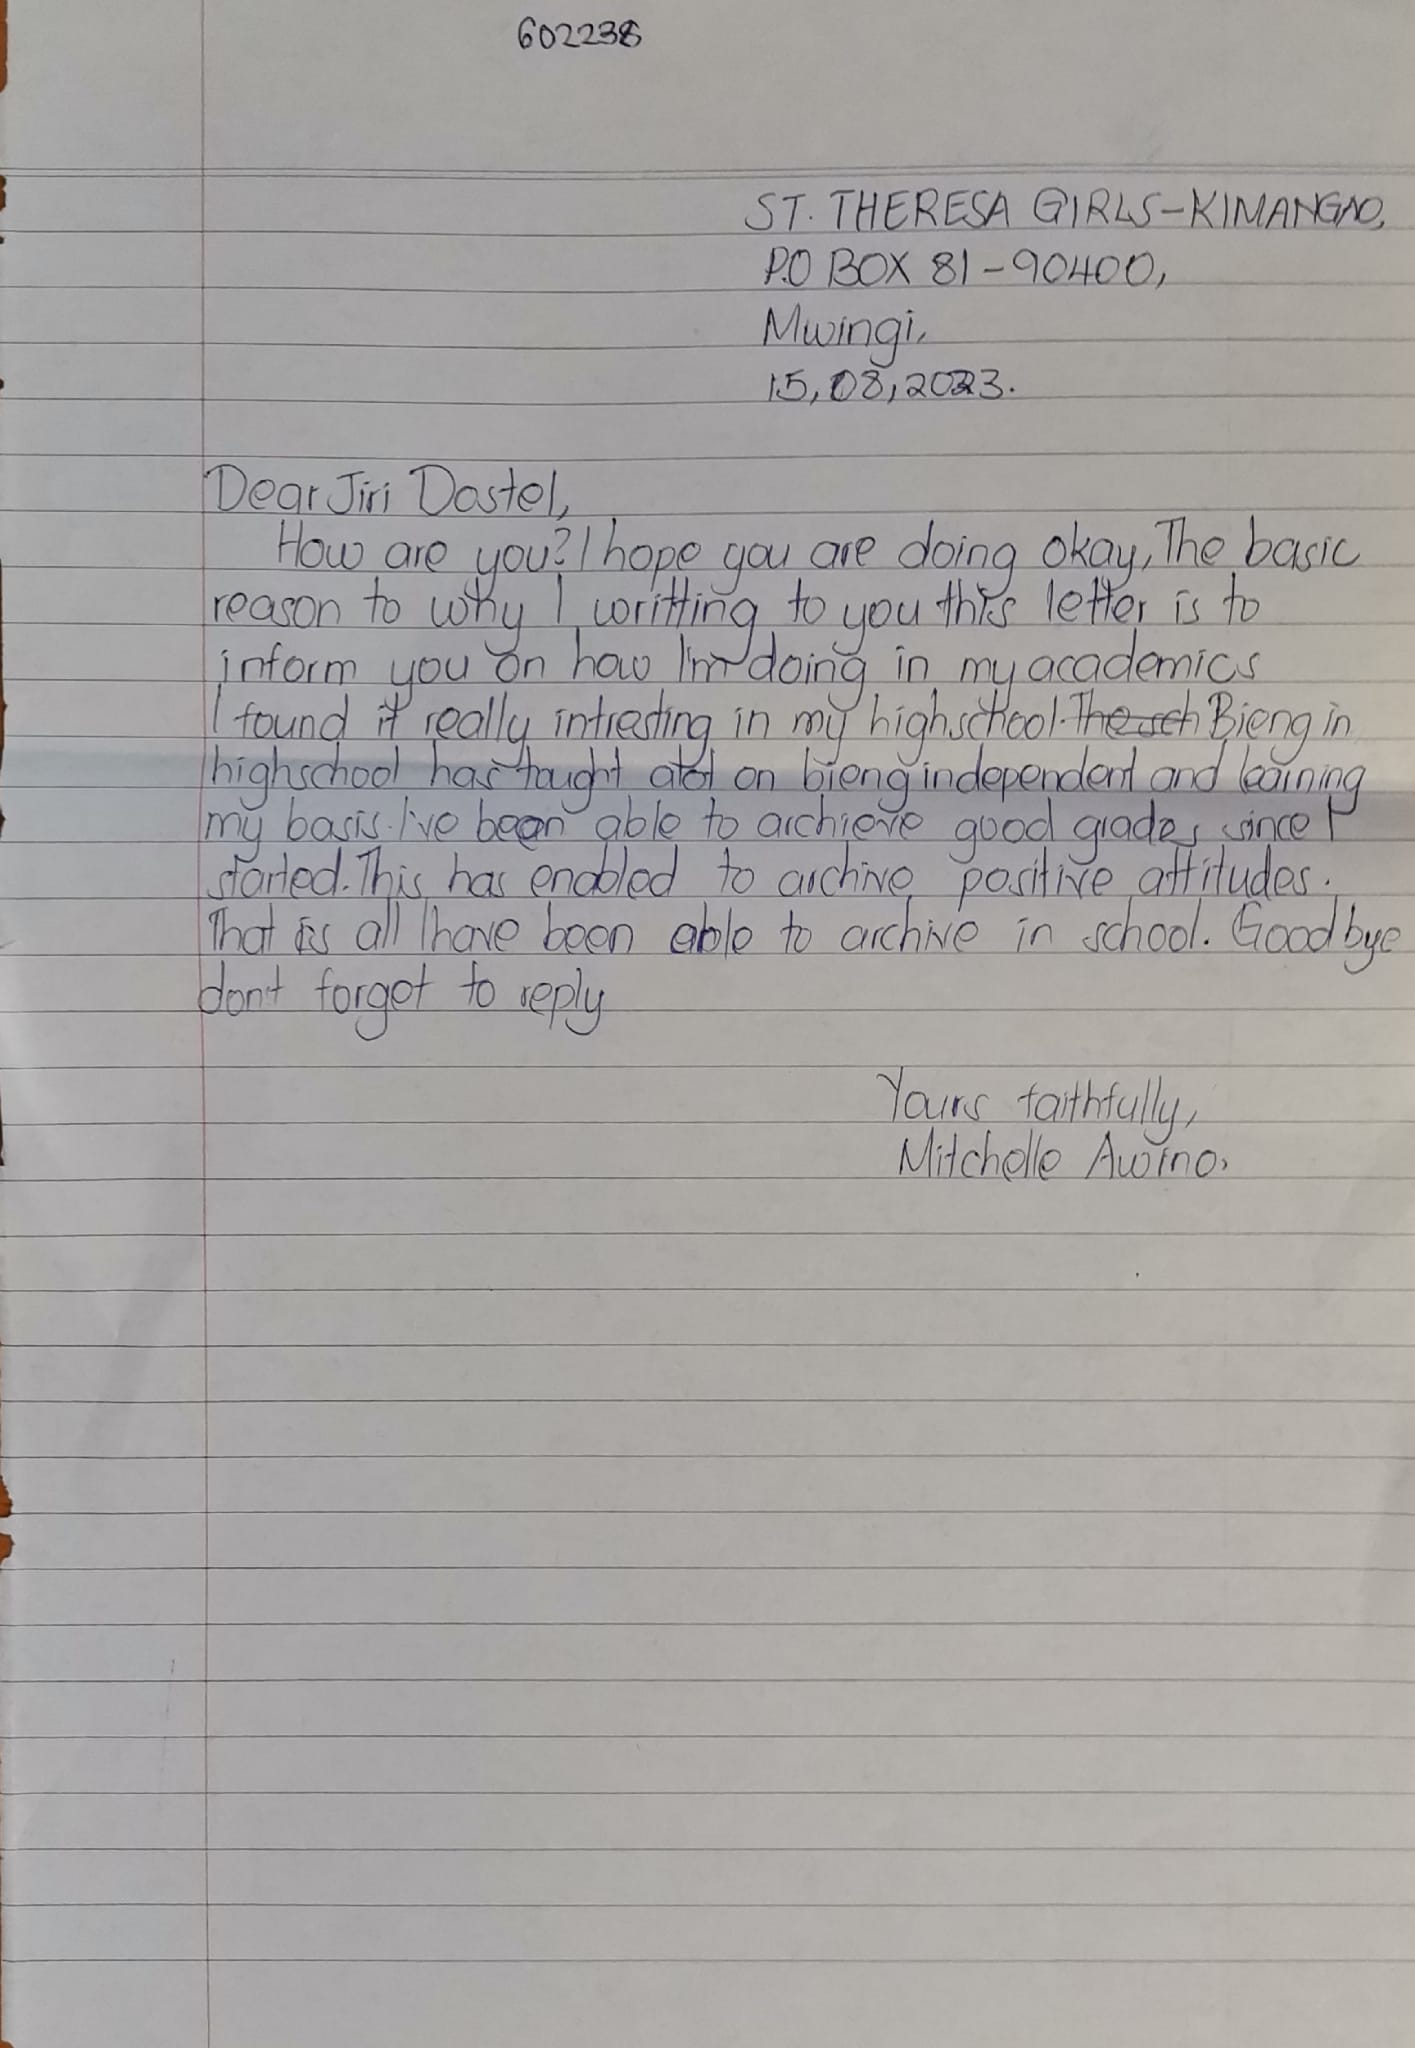 602238
ST. THERESA GIRLS-KIMANGAO,
P.O BOX 81-90400,
Mwingi,
15,08,2023.
Dear Jiri Dostel,
How are you? I hope you are doing okay, The basic
reason to why I writting to you this letter is to
inform you on how I'm doing in my academics
I found it really intresting in my highschool. The sch Bieng in
highschool has taught alot on bieng independent and learning
my basis. I've been able to archieve good grades since I
started. This has enabled to archive positive attitudes.
That is all I have been able to archive in school. Goodbye
don't forget to reply
Yours faithfully,
Mitchelle Awino.